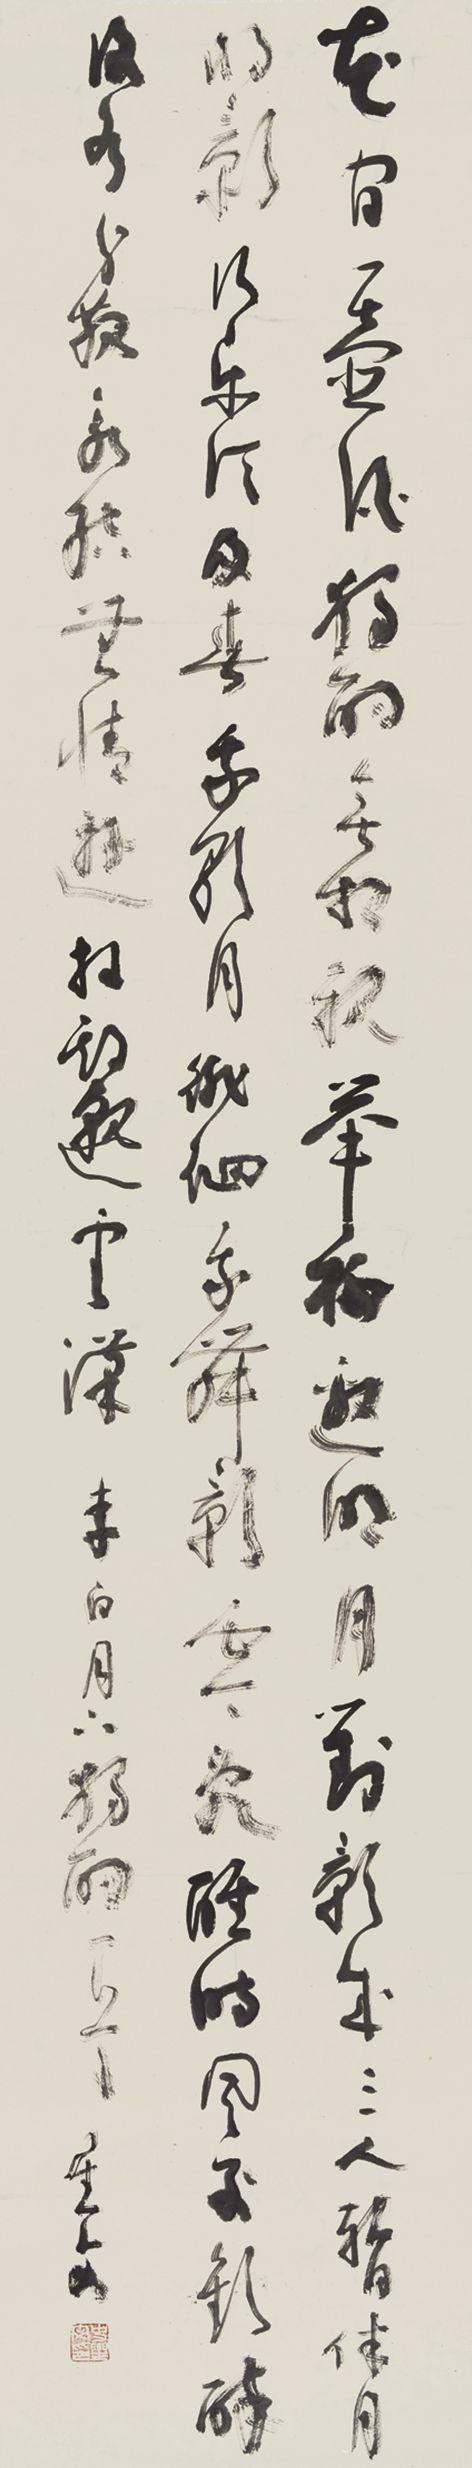 花間一壺酒獨酌無相親舉杯邀明月對影成三人暫伴月
將影行樂須及春我歌月徘徊我舞影零亂醒時同交歡醉
後各分散永結無情遊相期邈雲漢 李白月下獨酌